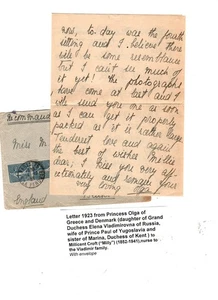 now, to day was the fourth
sitting and I believe there
will be some resemblance
but I can't see much of
it yet! The photographs
have come at last and I
will send you one as soon
as I can get it properly
packed as it is rather large
Tenderest love and again
the best of wishes Milly
dear, I kiss you very aff-
ectionately and remain your
very loving
Recommandé
Miss M
England
Letter 1923 from Princess Olga of
Greece and Denmark (daughter of Grand
Duchess Elena Vladimirovna of Russia,
wife of Prince Paul of Yugoslavia and
sister of Marina, Duchess of Kent.) to
Millicent Croft ("Milly") (1852-1941),nurse to
the Vladimir family.
With envelope